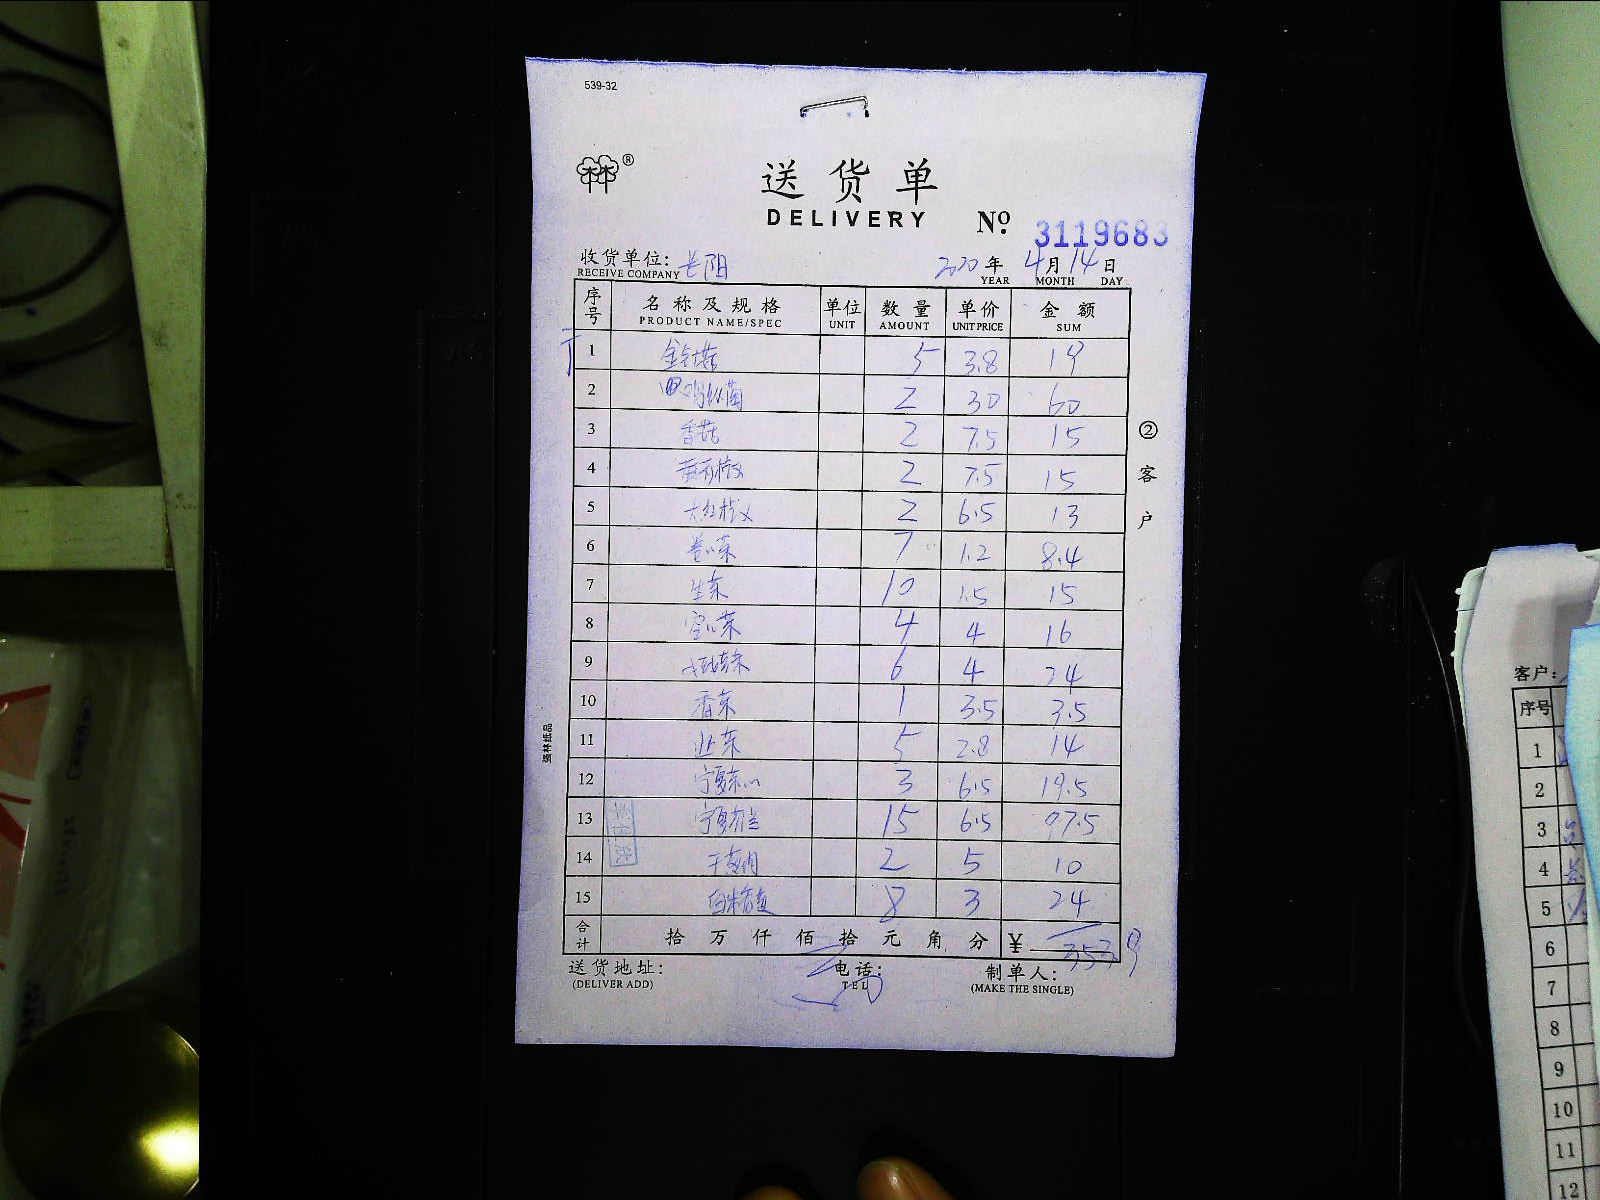 539-32
林®
送货单
DELIVERY No 3119683
收货单位: 长阳 2020年 4月 14日
RECEIVE COMPANY YEAR MONTH DAY
序号 名称及规格 单位 数量 单价 金额
PRODUCT NAME/SPEC UNIT AMOUNT UNIT PRICE SUM
1 金针菇 5 3.8 19
2 鸡枞菌 2 30 60
3 香菇 2 7.5 15
4 2 7.5 15
5 大红椒 2 6.5 13
6 卷心菜 7 1.2 8.4
7 生菜 10 1.5 15
8 空心菜 4 4 16
9 6 4 24
10 香菜 1 3.5 3.5
11 韭菜 5 2.8 14
12 宁夏菜心 3 6.5 19.5
13 宁夏 15 6.5 97.5
14 2 5 10
15 8 3 24
合计 拾 万 仟 佰 拾 元 角 分 ¥ 353.9
送货地址: 电话: 制单人:
(DELIVER ADD) TEL (MAKE THE SINGLE)
②客户
强林纸品
客户:
序号
1
2
3
4
5
6
7
8
9
10
11
12